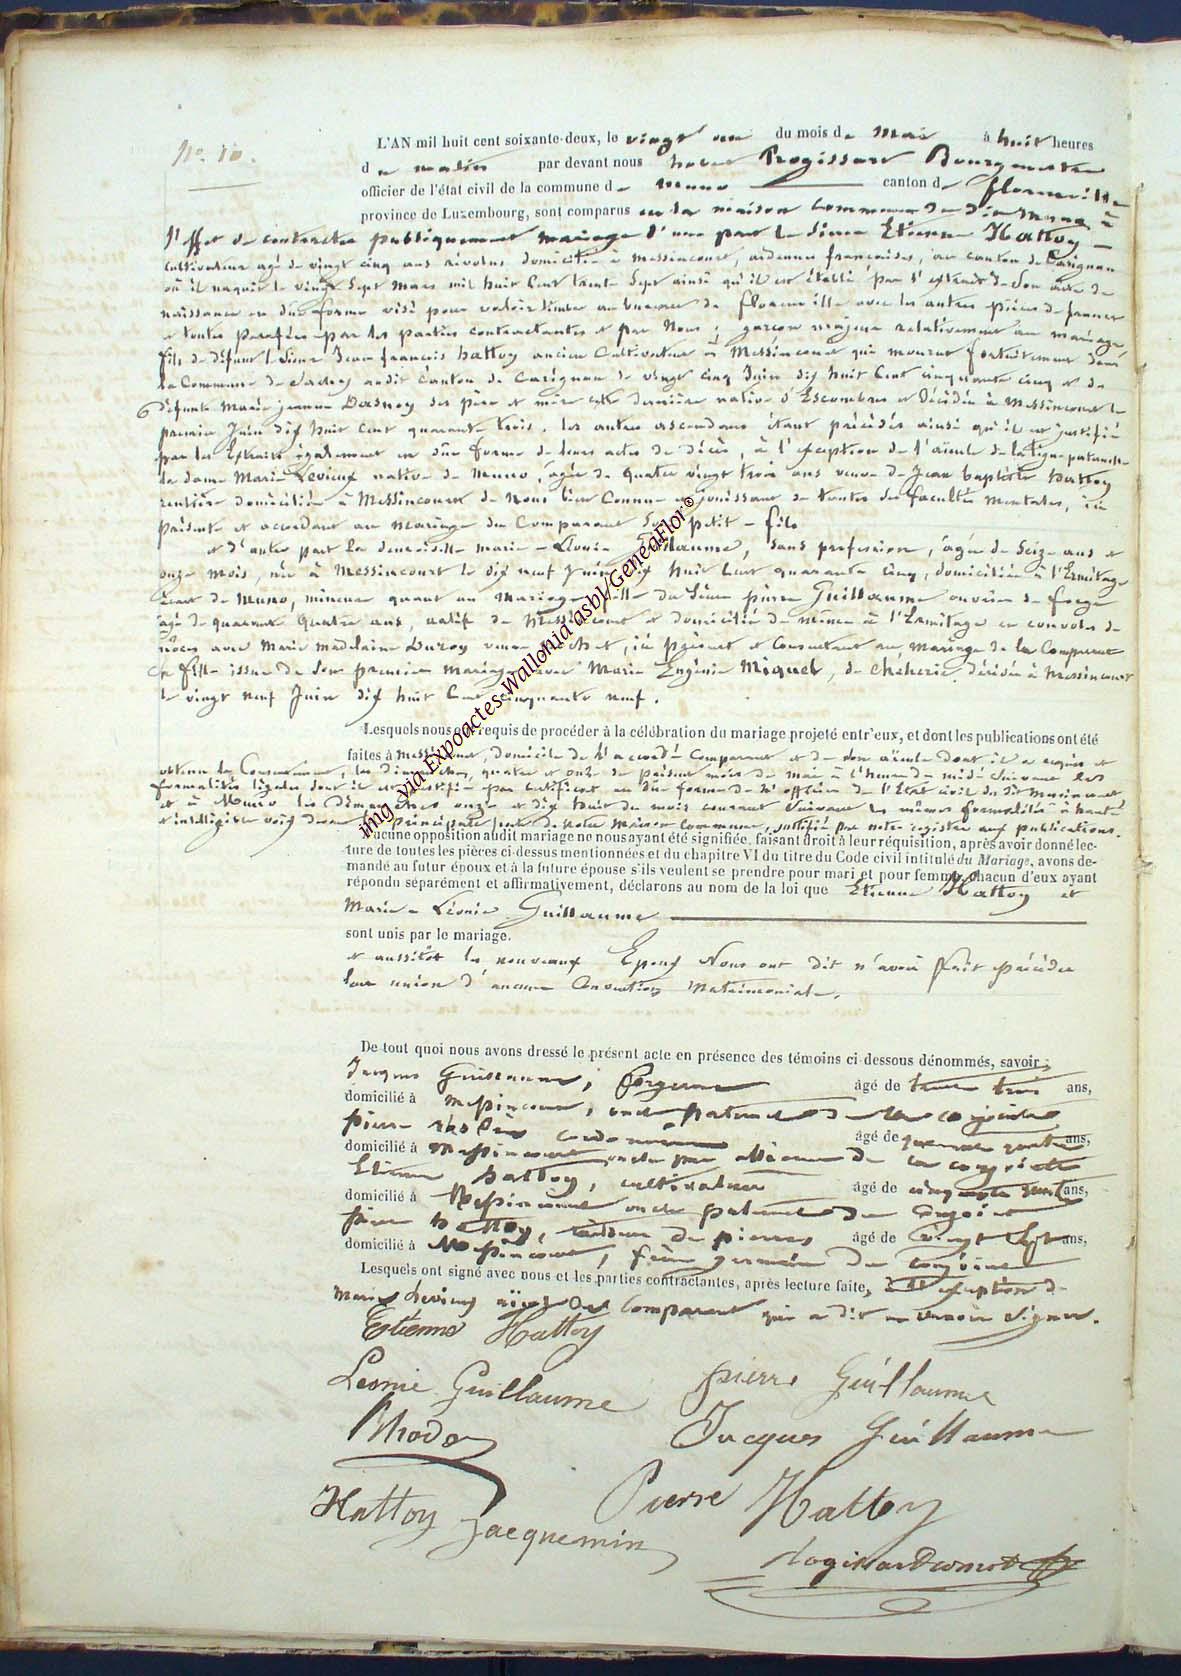 N° 10.
L'AN mil huit cent soixante-deux, le vingt un du mois de Mai à huit heures
du matin par devant nous Progissart Bourgmestre
officier de l'état civil de la commune de Muno canton de florenville
province de Luxembourg, sont comparus en la maison commune de dit Muno à
l'effet de contracter publiquement mariage d'une part le sieur Etienne Hattoy
cultivateur agé de vingt cinq ans révolus domicilié à Messincourt, ardennes francaises, au canton de Carignan
où il naquit le vingt sept mars mil huit Cent trente Sept ainsi qu'il est établi par l'extrait de Son acte de
naissance en düe forme visé pour valoir timbre au bureau de florenville avec les autres pièces de france
et toutes paraféés par les parties contractantes et par Nous ; garçon majeur relativement au mariage
fils de défunt le Sieur Jean francois hattoy ancien Cultivateur à Messincourt qui mourut fortuitement dans
la Commune de Sachy audit Canton de Carignan le vingt cinq Juin dix huit Cent cinquante cinq et de
défunte Marie jeanne Dasnoy ses pere et mère cette dernière native d'Escombres et décédée à Messincourt le
premier Juin dix huit cent quarante trois. les autres ascendans étant précédés ainsi qu'il est justifié
par les Extraits également en düe forme de leurs actes de décès, à l'exception de l'aïeule de la ligne paternelle
la dame Marie Levieux native de Muno, agée de quatre vingt trois ans veuve de Jean baptiste Hattoy
rentière domiciliée à Messincourt de Nous bien Connue et jouissant de toutes ses facultés mentales, ici
présente et accordant au Mariage du Comparant Son petit-fils
et d'autre part la demoiselle marie-Léonie Guillaume, Sans profession, agée de Seize ans et
onze mois, née à Messincourt le dix neuf Juin dix huit Cent quarante cinq, domiciliée à l'Ermitage
écart de Muno, mineure quant au Mariage fille du Sieur pierre Guillaume ouvrier de forge
agé de quarante quatre ans, natif de Messincourt et domicilié de même à l'Ermitage en convoles de
nôces avec Marie Madelaine Duroy veuve, ici présent et Consentant au Mariage de la Comparante
Sa fille issue de Son premier mariage avec Marie Eugénie Miquel, de Cheherie, décédée à Messincourt
le vingt neuf Juin dix huit Cent Cinquante neuf.
Lesquels nous ont requis de procéder à la célébration du mariage projeté entr'eux, et dont les publications ont été
faites à Messincourt, domicile de l'accordé Comparant et de son aïeule dont il a requis et
obtenu le Consentement, les dimanches, quatre et onze du présent mois de mai à l'heure de midi Suivant les
formalités légales dont il est justifié par Certificat en düe forme de Mr l'officier de l'Etat civil du dit Messincourt
et à Muno les dimanches onze et dix huit du mois courant Suivant les mêmes formalités à haute
et intelligible voix devant la principale porte de notre Maison Commune, justifié par notre registre aux publications.
Aucune opposition audit mariage ne nous ayant été signifiée, faisant droit à leur réquisition, après avoir donné lec-
ture de toutes les pièces ci-dessus mentionnées et du chapitre VI du titre du Code civil intitulé du Mariage, avons de-
mandé au futur époux et à la future épouse s'ils veulent se prendre pour mari et pour femme, chacun d'eux ayant
répondu séparément et affirmativement, déclarons au nom de la loi que Etienne Hattoy et
Marie-Léonie Guillaume
sont unis par le mariage.
et aussitôt les nouveaux Epoux Nous ont dit n'avoir fait précéder
leur union d'aucune Convention Matrimoniale.
De tout quoi nous avons dressé le présent acte en présence des témoins ci-dessous dénommés, savoir :
Jacques Guillaume, forgeron âgé de trente trois ans,
domicilié à Messincourt, oncle paternel de la conjointe
pierre cordonnier âgé de quarante quatre ans,
domicilié à Messincourt oncle par alliance de la conjointe
Etienne hattoy, cultivateur âgé de cinquante ans,
domicilié à Messincourt oncle paternel du conjoint
pierre hattoy, tailleur de pierres âgé de vingt Sept ans,
domicilié à Messincourt, frère germain du conjoint
Lesquels ont signé avec nous et les parties contractantes, après lecture faite, à l'exception de
Marie Levieux aïeule du Comparant qui a dit ne Savoir Signer.
Etienne Hattoy
Leonie Guillaume pierre Guillaume
Rhodes Jacques Guillaume
Hattoy Jacquemin Pierre Hattoy
img via Expoactes-Wallonia asbl/GeneaFlor®